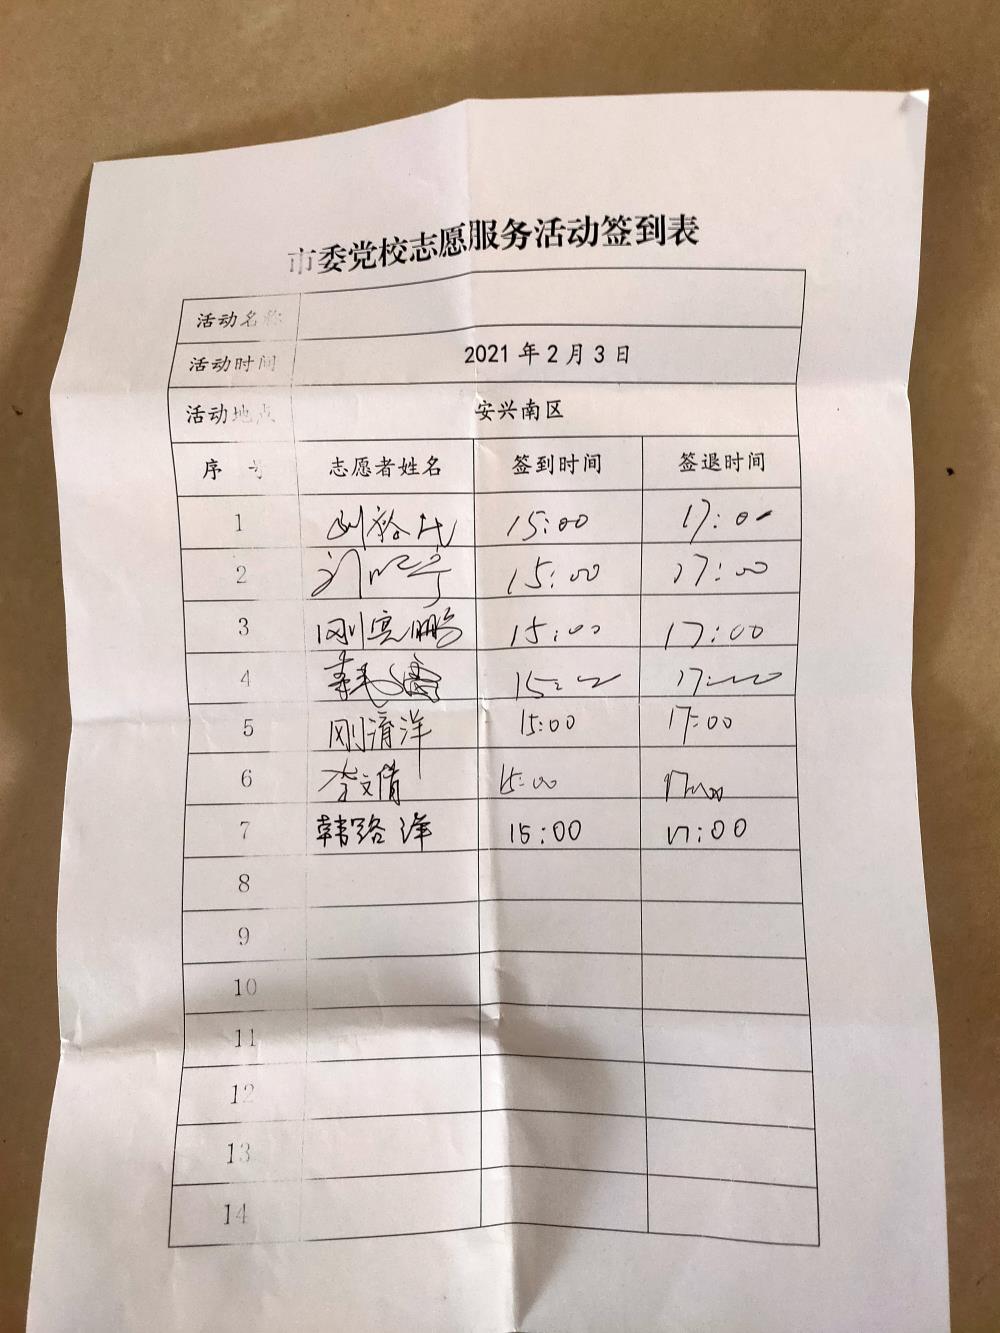 市委党校志愿服务活动签到表
活动名称
活动时间 2021年2月3日
活动地点 安兴南区
序号 志愿者姓名 签到时间 签退时间
1 15:00 17:00
2 15:00 17:00
3 刚宾鹏 15:00 17:00
4 15:00 17:00
5 刚淯洋 15:00 17:00
6 李文倩 15:00 17:00
7 韩路洋 15:00 17:00
8
9
10
11
12
13
14